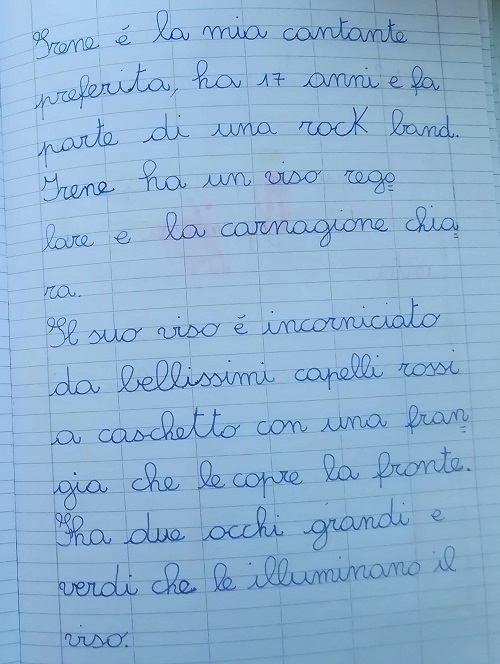 Irene é la mia cantante
preferita, ha 17 anni e fa
parte di una rock band.
Irene ha un viso rego=
lare e la carnagione chia=
ra.
Il suo viso é incorniciato
da bellissimi capelli rossi
a caschetto con una fran=
gia che le copre la fronte.
Ha due occhi grandi e
verdi che le illuminano il
viso.